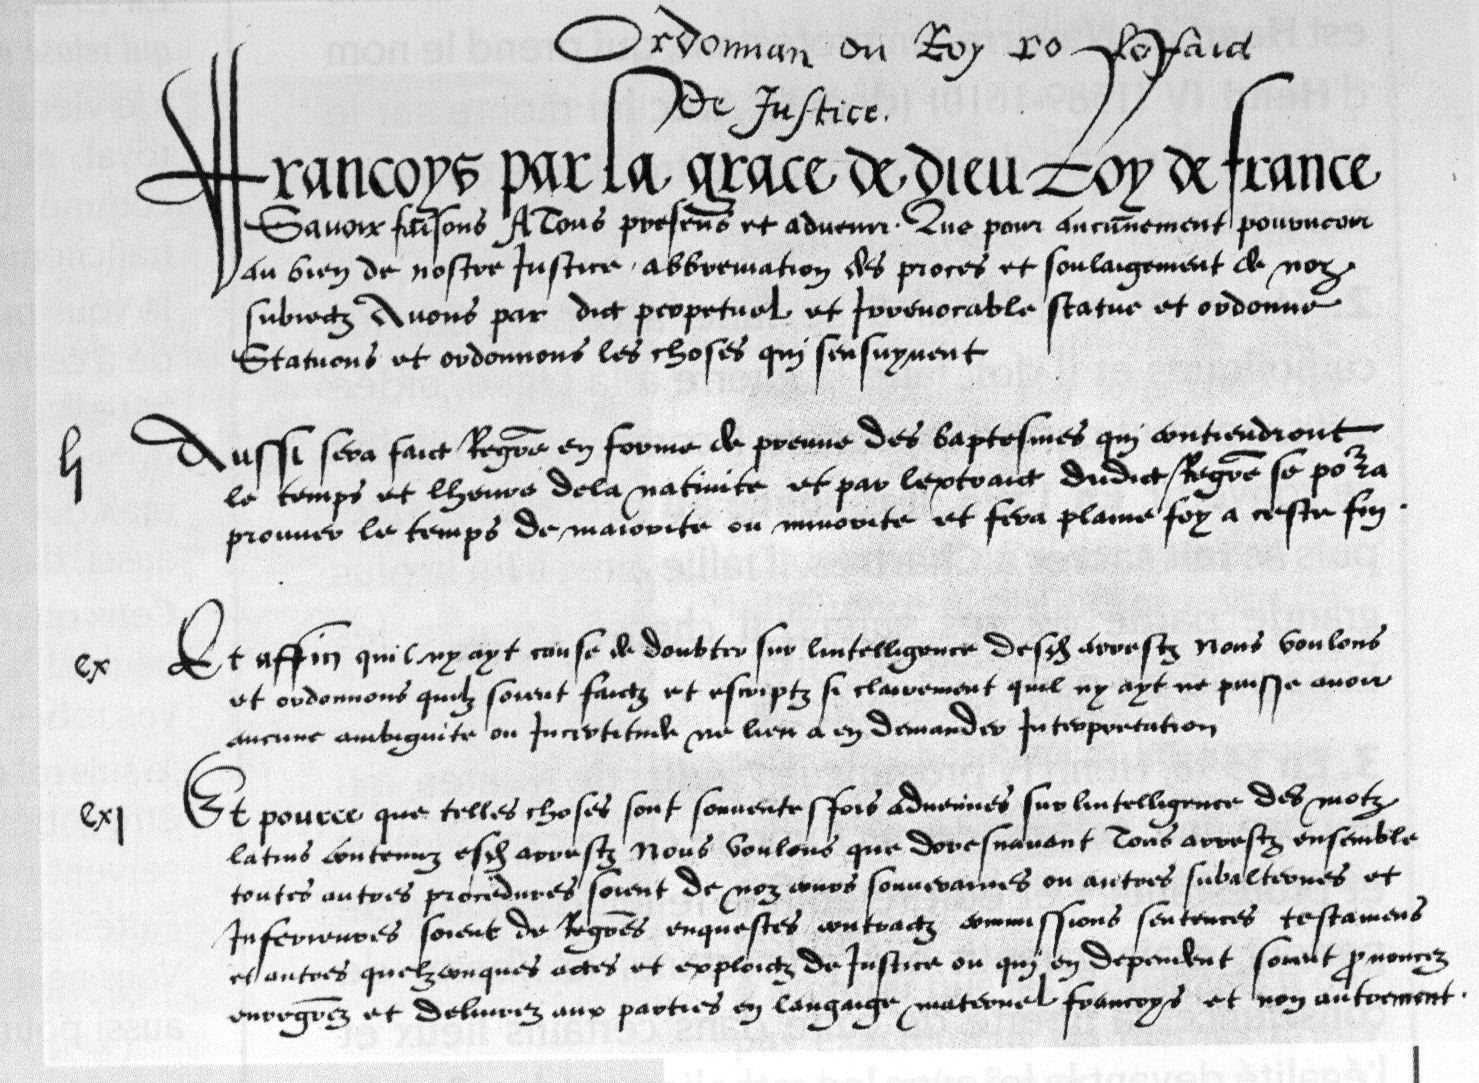 Ordonnan du Roy ro le faict
de Justice.
francoys par la grace de dieu Roy de france
Savoir faisons A Tous presens et advenir. Que pour aucunement pourveoir
au bien de nostre Justice, abbreviation des proces et soulaigement de noz
subiectz Avons par dict perpetuel et Irrevocable statue et ordonne
Statuons et ordonnons les choses qui sensuyvent
li Aussi sera faict Regre en forme de preuve des baptesmes qui contiendront
le temps et lheure dela nativite et par lextraict dudict Regre se porra
prouver le temps de maiorite ou minorite et fera plaine foy a ceste fin.
cx Et affin quil ny ayt cause de doubter sur lintelligence desd arrestz Nous voulons
et ordonnons quilz soient faictz et escriptz si clairement quil ny ayt ne puisse avoir
aucune ambiguite ou Incertitude ne lieu a en demander Interpretation
cxi Et pource que telles choses sont souventesffois advenues sur lintelligence des motz
latins contenuz esd arrestz Nous voulons que doresnavant Tous arrestz ensemble
toutes autres procedures soient de noz cours souveraines ou autres subalternes et
Inferieures soient de Regres enquestes contractz commissions sentences testamens
et autres quelzconques actes et exploictz de Justice ou qui en dependent soient prononcez
enregrez et delivrez aux parties en langaige maternel francoys et non autrement.